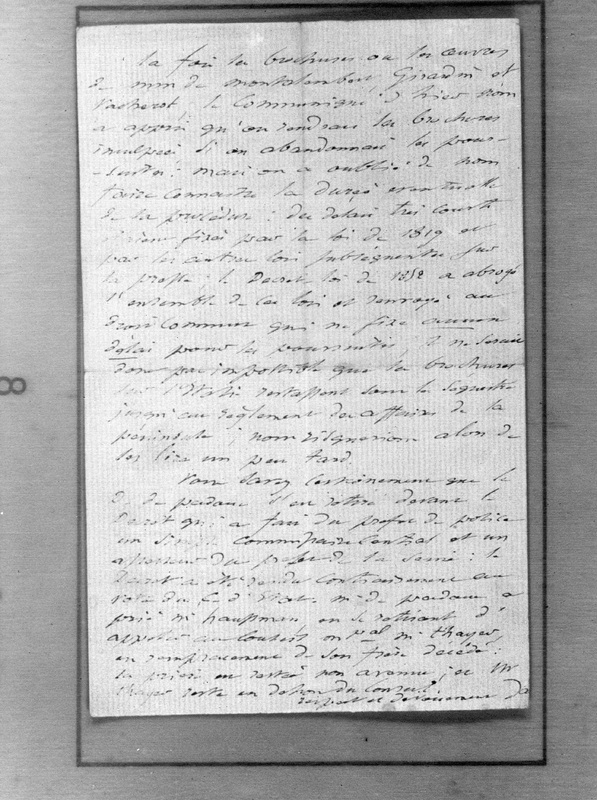 la fois les brochures ou les œuvres
de mm de montalembert, Girardin et
Vacherot, le Communiqué d'hier nous
a appris qu'on rendrait les brochures
inculpées si on abandonnait les pour-
-suites : mais on a oublié de nous
faire connaître la durée eventuelle
de la procédure : des délais très courts
étaient fixés par la loi de 1819 et
par les autres lois subséquentes sur
la presse ; le Decret loi de 1852 a abrogé
l'ensemble de ces lois et renvoyé au
droit Commun qui ne fixe aucun
délai pour les poursuites ; il ne serait
donc pas impossible que les brochures
sur l'Italie restassent sous le séquestre
jusqu'au règlement des affaires de la
péninsule ; nous risquerions alors de
les lire un peu tard.
Vous savez certainement que le
D. de padoue s'est retiré devant le
Decret qui a fait du prefet de police
un simple Commissaire Central et un
du prefet de la Seine : le
Decret a été rendu Contrairement au
vote du C. d'Etat. m. de padoue a
prié m. haussman, en se retirant d'
appeler au Conseil mal m. thayer,
en remplacement de son frère décédé :
la prière est restée non avenue ; et Mr
thayer reste en dehors du Conseil.
respect et devouement